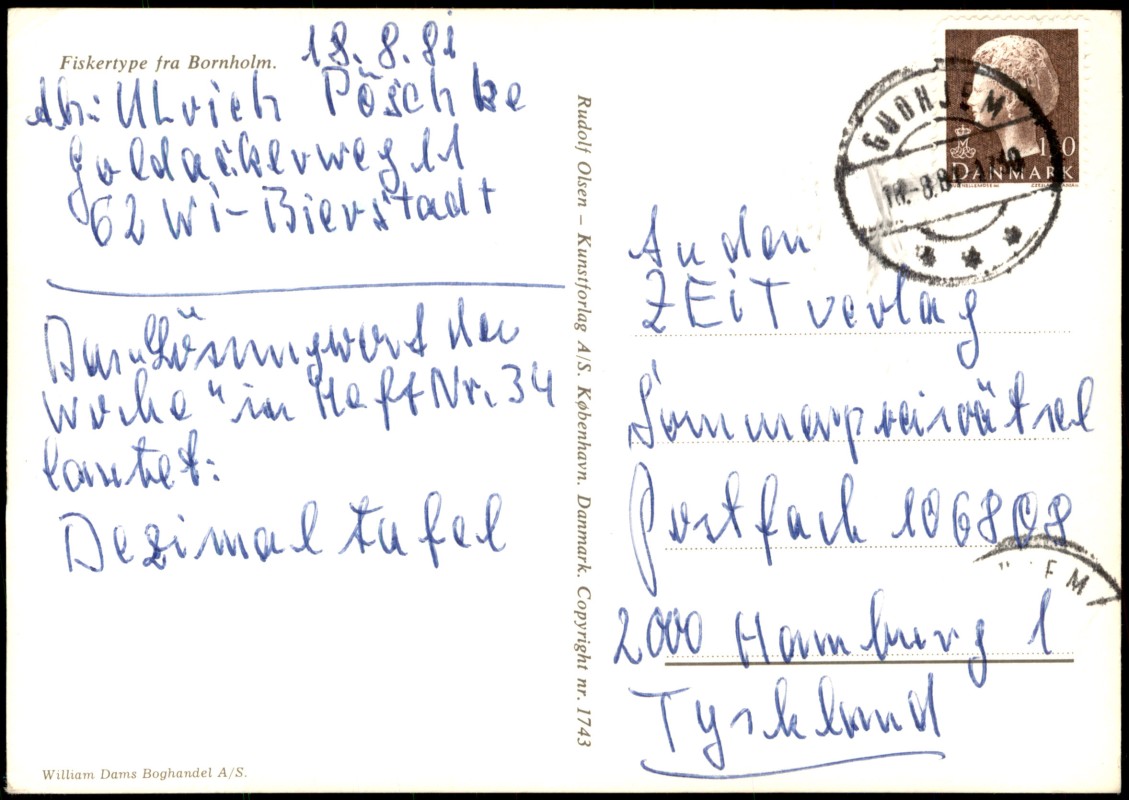 Fiskertype fra Bornholm.
18.8.81
Abs: Ullrich Pöschke
Goldackerweg 11
62 Wi-Bierstadt
Das „Lösungswort der
Woche" in Heft Nr. 34
lautet:
Dezimaltafel
William Dams Boghandel A/S.
Rudolf Olsen – Kunstforlag A/S. København. Danmark. Copyright nr. 1743
GUDHJEM
18.-8.81
DANMARK
An den
ZEIT verlag
Sommerpreisrätsel
Postfach 106808
2000 Hamburg 1
Tyskland